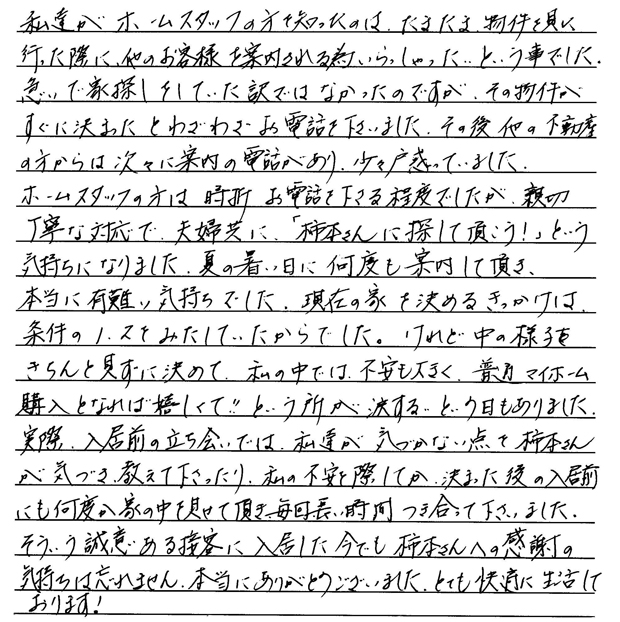 私達がホームスタッフの方を知ったのは、たまたま物件を見に
行った際に、他のお客様を案内される為いらっしゃった…という事でした。
急いで家探しをしていた訳ではなかったのですが、その物件が
すぐに決まったとわざわざお電話を下さいました。その後他の不動産
の方からは次々に案内の電話があり、少々戸惑っていました。
ホームスタッフの方は時折お電話を下さる程度でしたが、親切
丁寧な対応で、夫婦共に、「柿本さんに探して頂こう！」という
気持ちになりました。夏の暑い日に何度も案内して頂き、
本当に有難い気持ちでした。現在の家を決めるきっかけは、
条件の1、2をみたしていたからでした。けれど中の様子を
きちんと見ずに決めて、私の中では、不安も大きく、普通マイホーム
購入となれば嬉しくて!!という所が涙する…という日もありました。
実際、入居前の立ち会いでは、私達が気づかない点を柿本さん
が気づき、教えて下さったり、私の不安を際してか、決まった後の入居前
にも何度か家の中を見せて頂き、毎回長い時間つき合って下さいました。
そういう誠意ある接客に入居した今でも柿本さんへの感謝の
気持ちは忘れません。本当にありがとうございました。とても快適に生活して
おります！